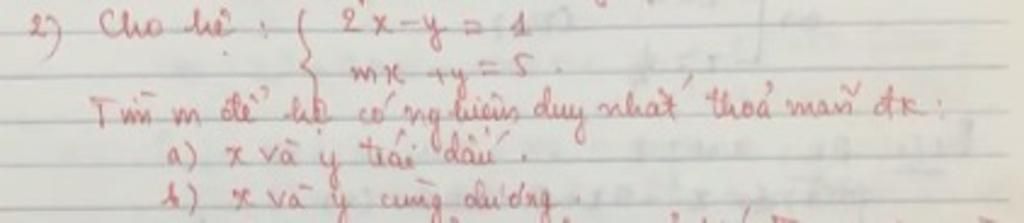 2) Cho hệ : { 2x - y = 1
mx + y = 5.
Tìm m để hệ có nghiệm duy nhất thoả mãn đk:
a) x và y trái dấu.
b) x và y cùng dương.